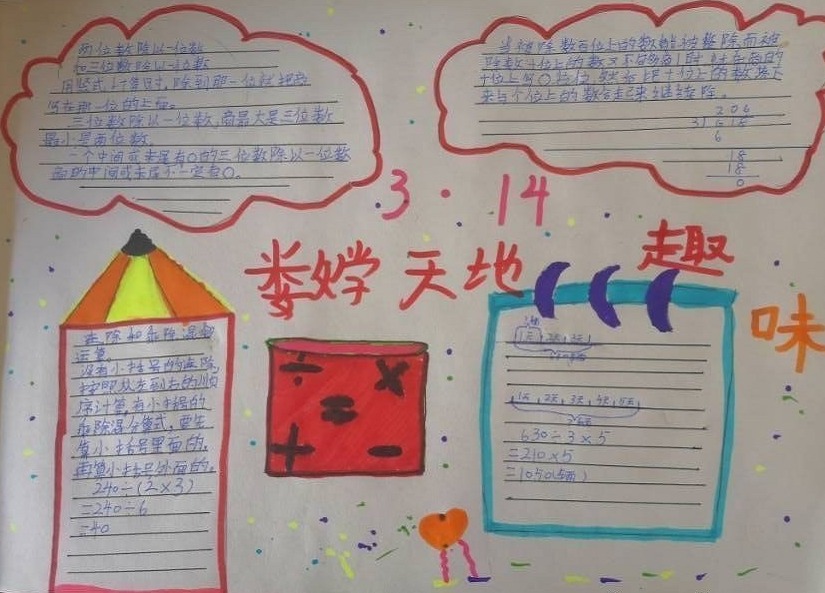 两位数除以一位数
和三位数除以一位数
用竖式计算时,除到那一位就把商
写在那一位的上面。
三位数除以一位数,商最大是三位数
最小是两位数,
一个中间或末尾有0的三位数除以一位数
商的中间或末尾不一定有0。
当被除数百位上的数能被整除而被
除数十位上的数又不够商1时,
十位上写0占位,
来与个位上的数合起来继续除。
206
3)618
6
18
18
0
3.14
天地
趣
味
连除和乘除混合
运算
没有小括号的连除,
按照从左到右的顺
序计算,有小括号的
乘除混合算式,要先
算小括号里面的,
再算小括号外面的。
240÷(2×3)
=240÷6
=40
÷ ×
=
+ −
1天 2天 3天
1天 2天 3天 4天 5天
630÷3×5
=210×5
=1050